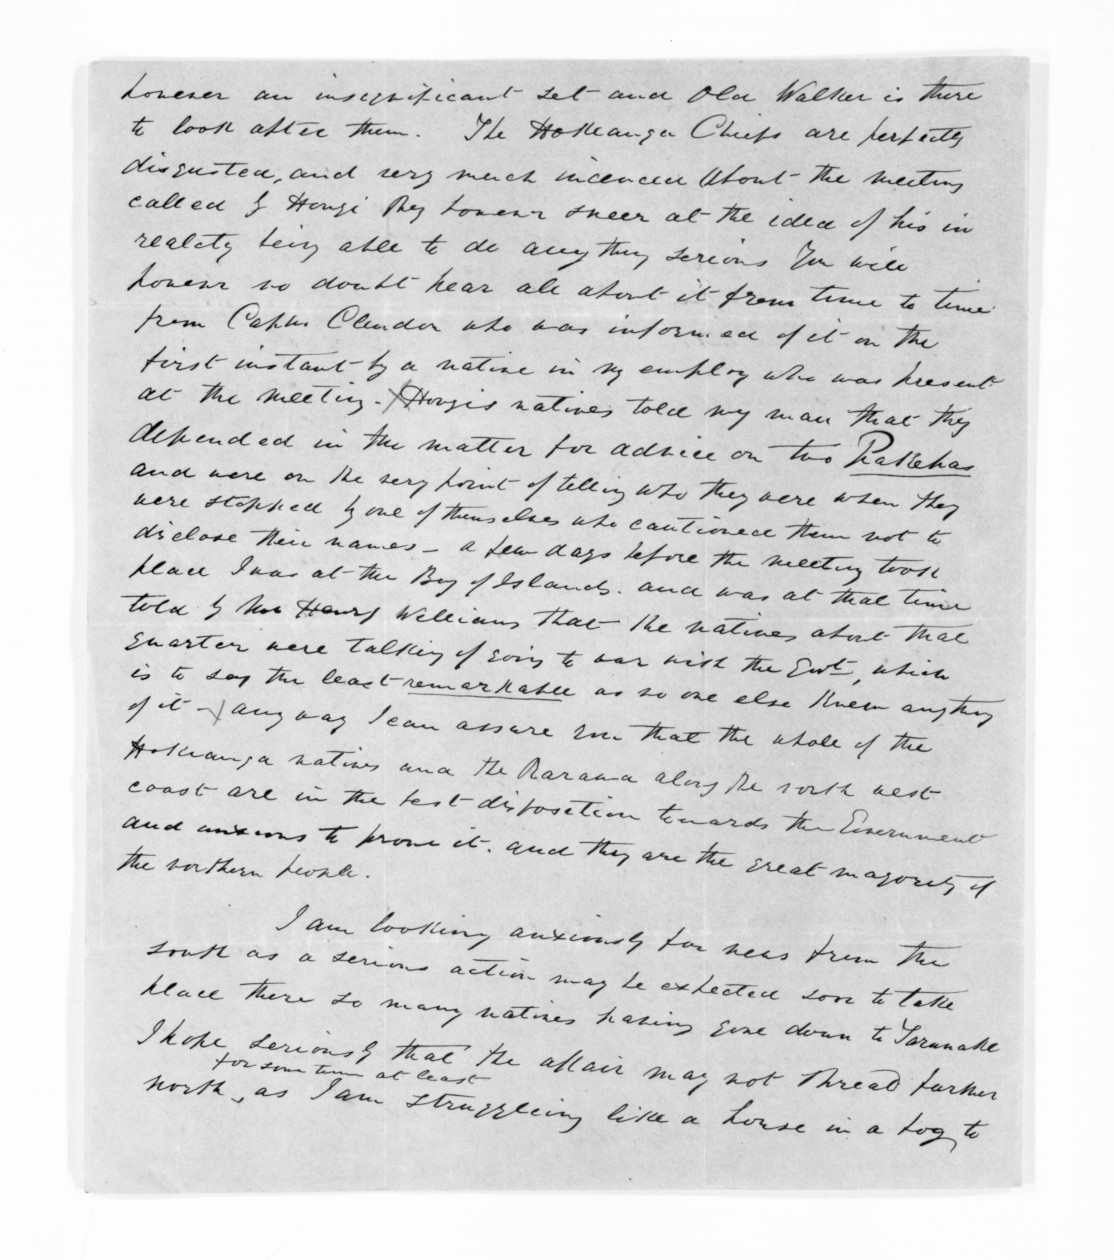 however an insignificant set and Old Walker is there
to look after them. The Hokeanga Chiefs are perfectly
disgusted, and very much incenced about the meeting
called by Hongi they however sneer at the idea of his in
reality being able to do any thing serious You will
however no doubt hear all about it from time to time
from Captn Clendon who was informed of it on the
first instant by a native in my employ who was present
at the meeting. Hongis natives told my man that they
depended in the matter for advice on two Pakehas
and were on the very point of telling who they were when they
were stopped by one of themselves who cautioned them not to
disclose their names – a few days before the meeting took
place I was at the Bay of Islands. and was at that time
told by Henry Williams that the natives about that
quarter were talking of going to war with the Govt, which
is to say the least remarkable as no one else knew anything
of it – any way I can assure you that the whole of the
Hokeanga natives and the Rarawa along the north west
coast are in the best disposition towards the Government
and anxious to prove it. and they are the great majority of
the northern people.
I am looking anxiously for news from the
south as a serious action may be expected soon to take
place there so many natives having gone down to Taranake
I hope seriously that the affair may not spread further
for some time at least
north, as I am struggleing like a horse in a bog to